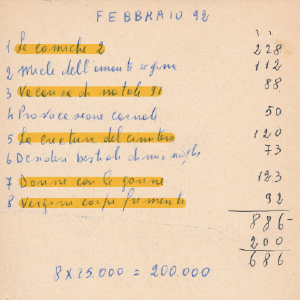 FEBBRAIO 92
1 Le comiche 2 228
2 Miele dell'amante regina 112
3 Vacanze di natale 91 88
4 Provocazione carnale 50
5 La creatura del cimitero 120
6 Desideri bestiali di mia moglie 73
7 Donne con le gonne 123
8 Vergini corpi frementi 92
886
200
686
8 x 25.000 = 200.000